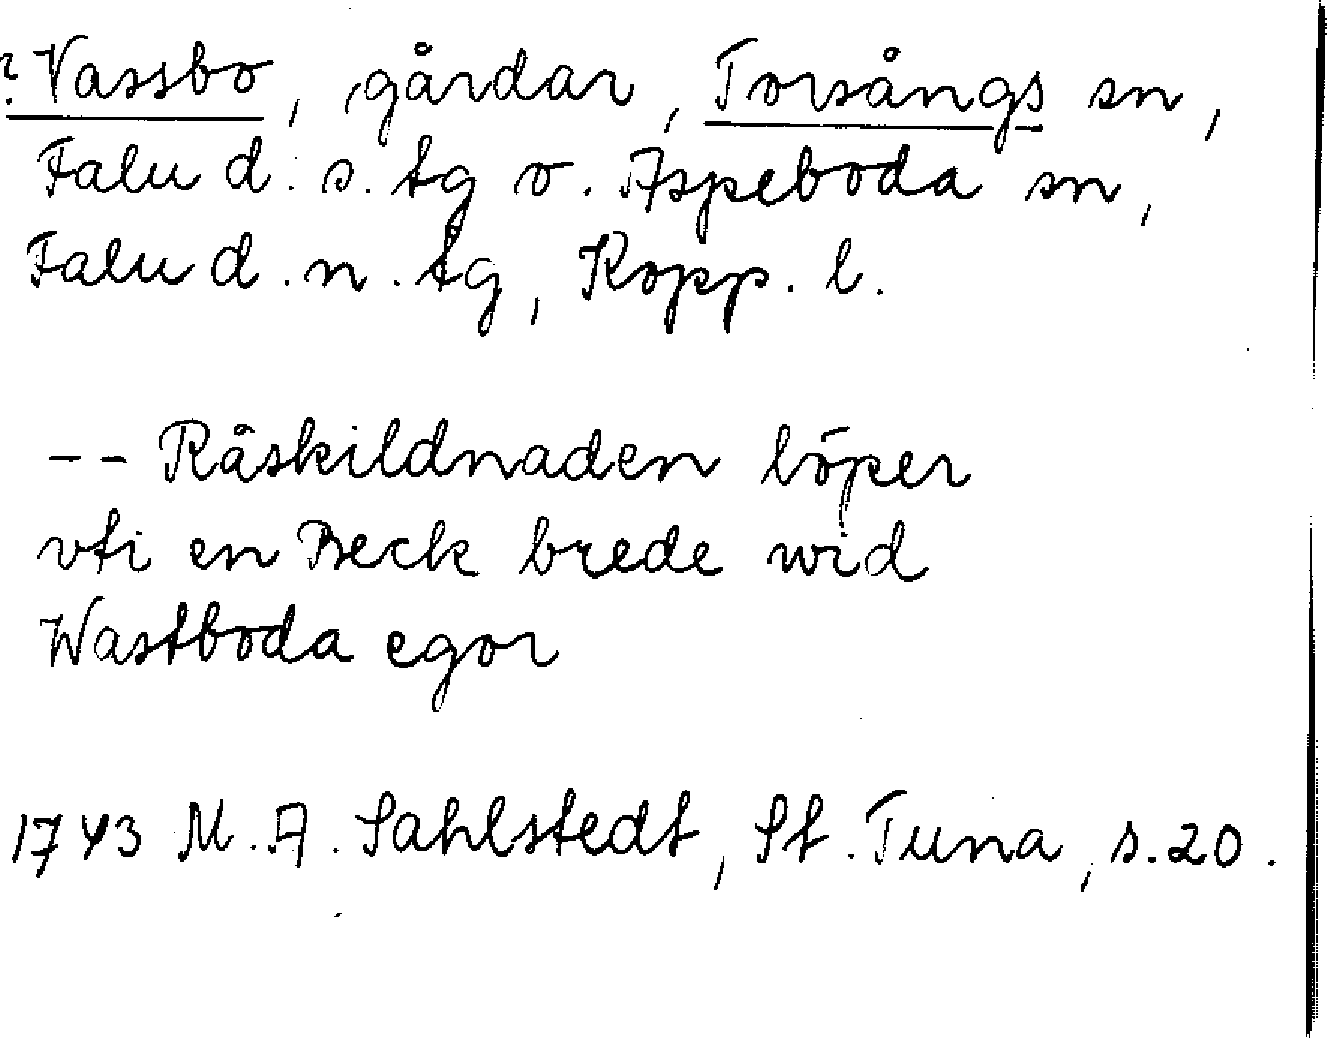 ? Vassbo, gårdar, Torsångs sn,
Falu d. s. tg o. Aspeboda sn,
Falu d. n. tg, Kopp. l.
-- Råskildnaden löper
vti en Beck brede wid
Wastboda egor
1743 M. A. Sahlstedt, St. Tuna, s. 20.